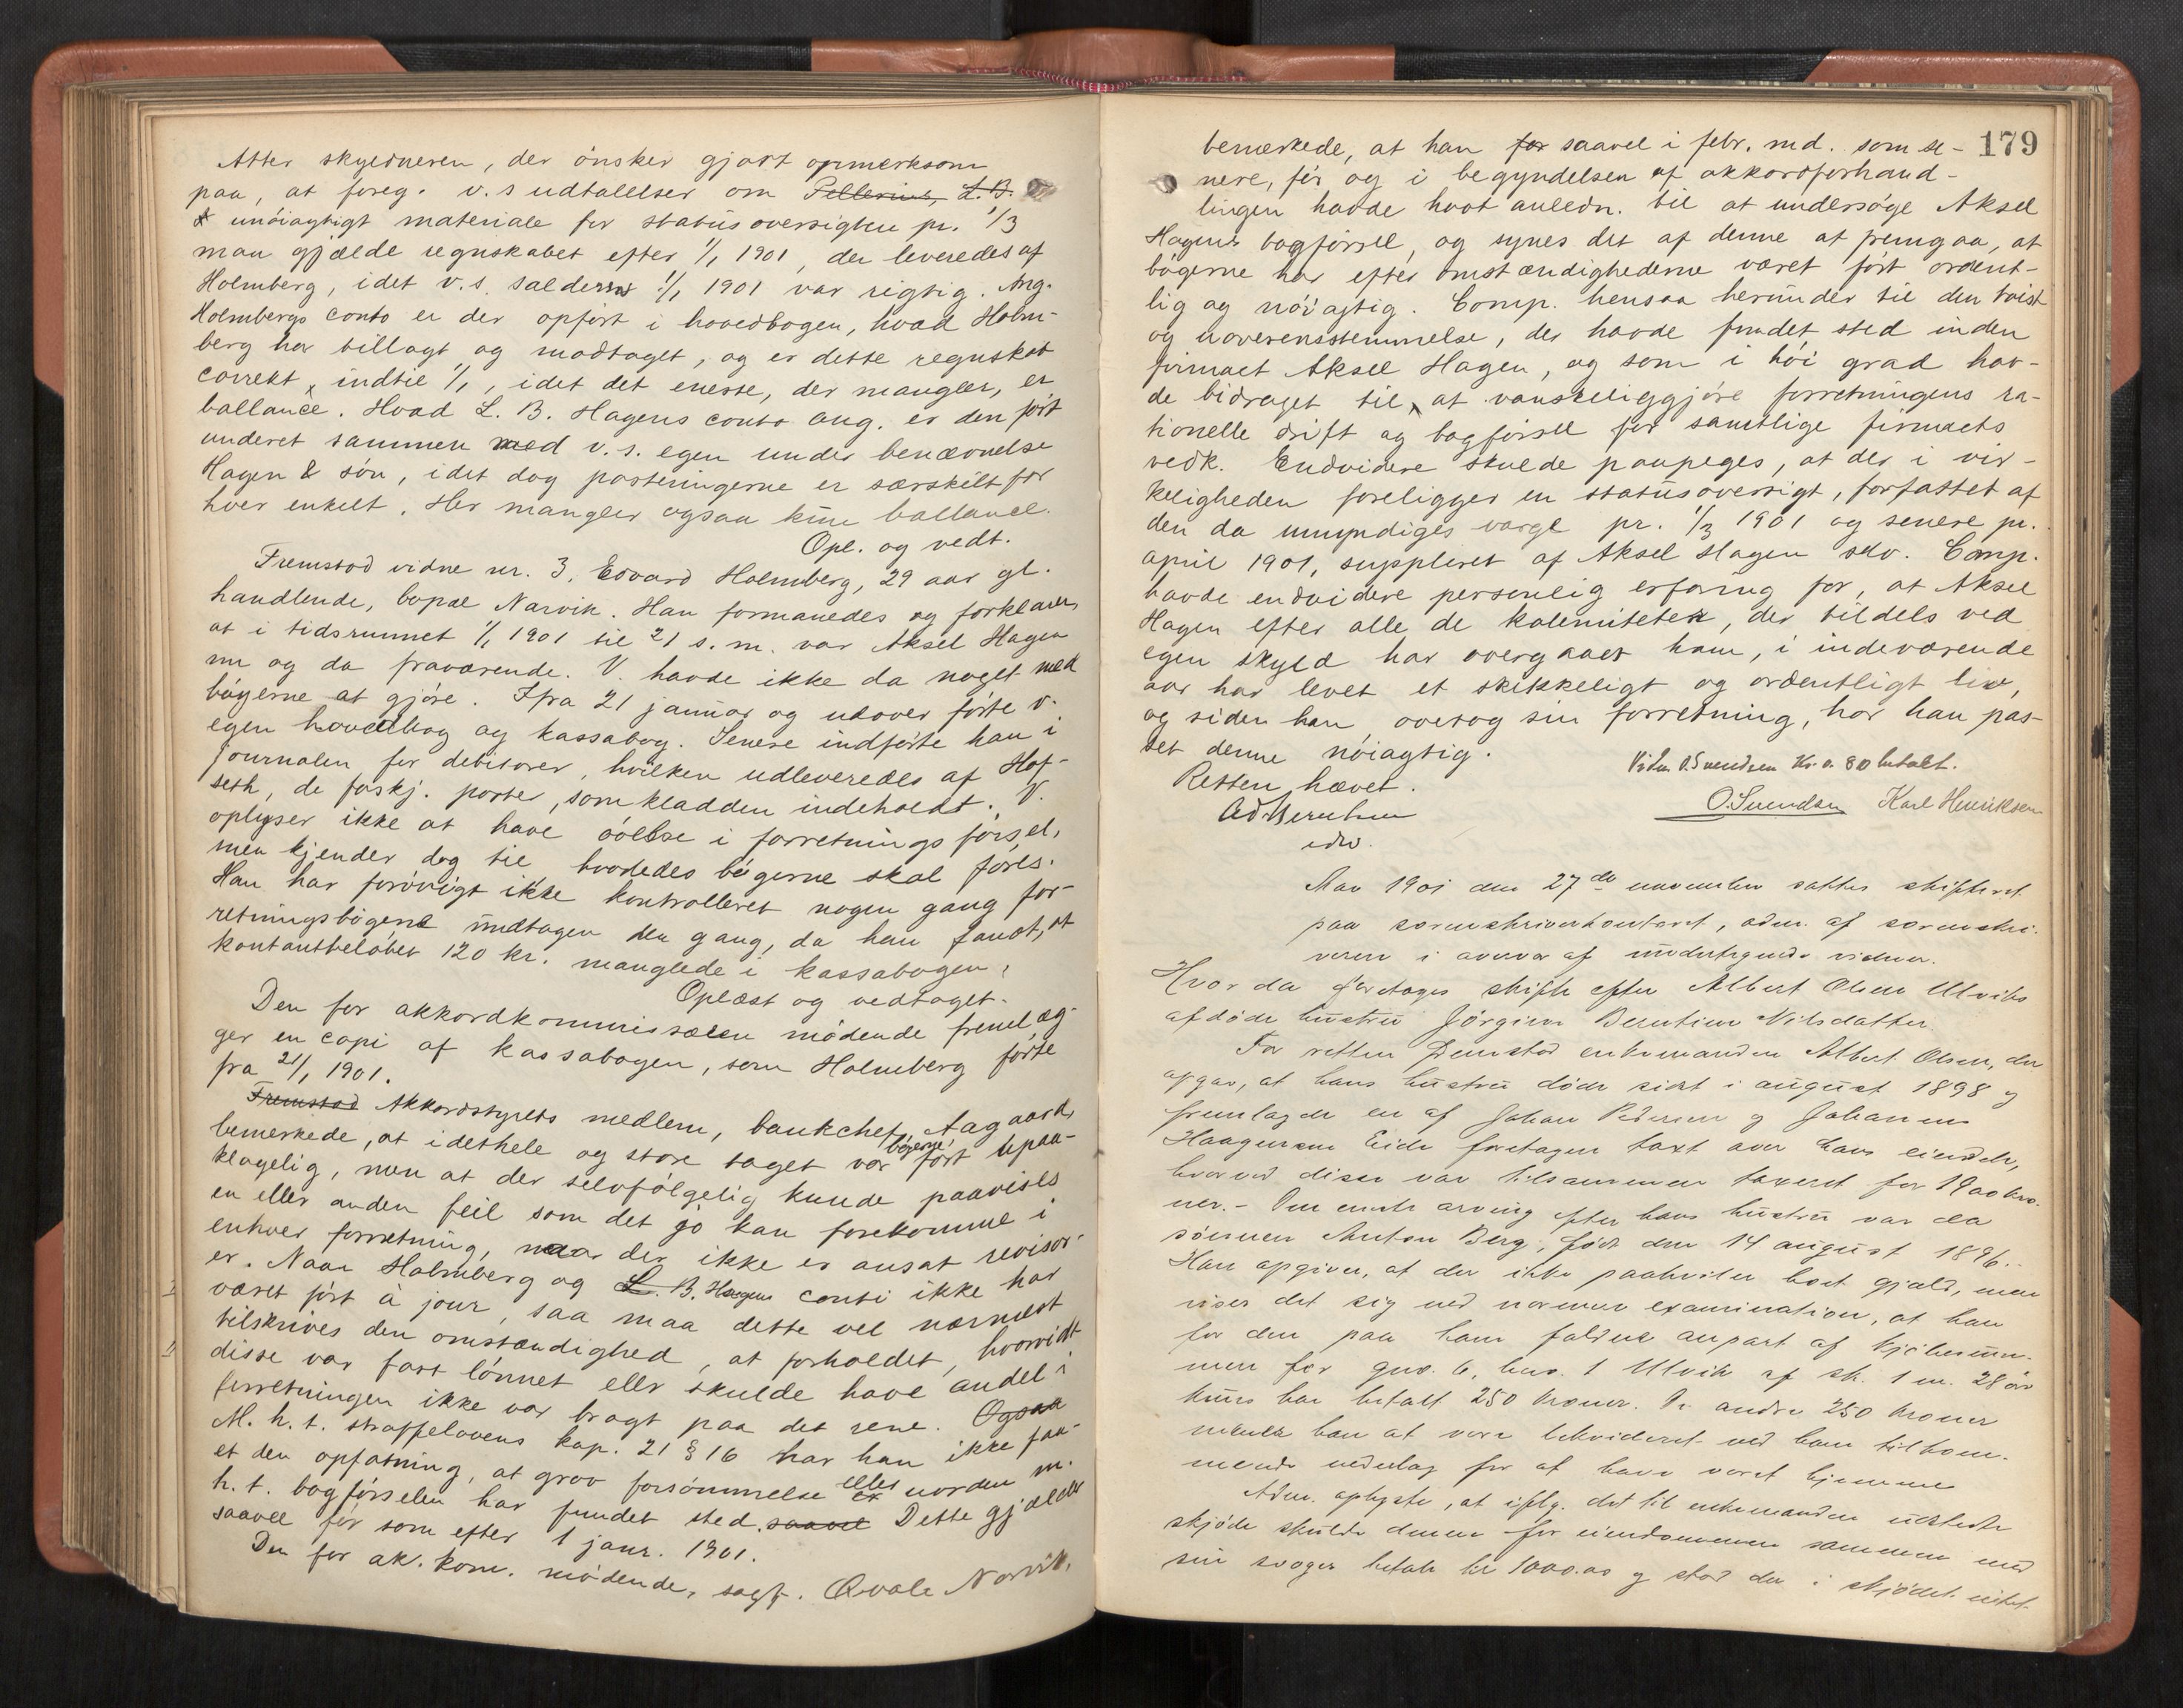 Atter skyldneren, der ønsker gjort opmerksom
paa, at foreg. v.s udtalelser om Pellerins, L.B.
& unøiagtigt materiale for statusoversigten pr. 1/3
maa gjælde regnskabet efter 1/1 1901, der leveredes af
Holmberg, idet v.s. saldern 1/1 1901 var rigtig. Ang.
Holmbergs conto er der opført i hovedbogen, hvad Holm-
berg har tillagt og modtaget, og er dette regnskab
correkt, indtil 1/1, idet det eneste, der mangler, er
ballance. Hvad L. B. Hagens conto ang. er den ført
underet sammen med v.s. egen under benævnelse
Hagen & søn, idet dog posteringerne er særskilt for
hver enkelt. Her mangler ogsaa kun ballance.
Opl. og vedt.
Fremstod vidne nr. 3, Edvard Holmberg, 29 aar gl.
handlende, bopæl Narvik. Han formanedes og forklarer,
at i tidsrummet 1/1 1901 til 21 s.m. var Aksel Hagen
nu og da fraværende. V. havde ikke da noget med
bøgerne at gjøre. Ifra 21 januar og udover førte v.
egen hovedbog og kassabog. Senere indførte han i
journalen for debitorer, hvilken udleveredes af Hof-
seth, de forskj. poster, som kladden indeholdt. V.
oplyser ikke at have øvelse i forretningsførsel,
men kjender dog til hvordedes bøgerne skal føres.
Han har forøvrigt ikke kontrolleret nogen gang for-
retningsbøgerne undtagen den gang, da han fandt, at
kontantbeløbet 120 kr. manglede i kassabogen.
Oplæst og vedtaget.
Den for akkordkommissæren mødende fremlæg-
ger en copi af kassabogen, som Holmberg førte
fra 21/1 1901.
Fremstod Akkordstyrets medlem, bankchef Aagaard,
bemerkede, at idethele og store taget var bøgerne ført upaa-
klagelig, men at der selvfølgelig kunde paavises
en eller anden feil som det jo kan forekomme i
enhver forretning, naar der ikke er ansat revisor-
er. Naar Holmberg og L. B. Hagens conti ikke har
været ført à jour, saa maa dette vel nærmest
tilskrives den omstændighed, at forholdet, hvorvidt
disse var fast lønnet eller skulde have andel i
forretningen ikke var bragt paa det rene. Ogsaa
M. h. t. straffelovens kap. 21 § 16 har han ikke faa-
et den opfatning, at grov forsømmelse eller uorden m.
h. t. bogførselen har fundet sted. saavel Dette gjælder
saavel før som efter 1 janr. 1901.
Den for ak. kom. mødende, sagf. Qvale Narvik,
179
bemærkede, at han for saavel i febr. md. som se-
nere, før og i begyndelsen af akkordforhand-
lingen havde havt anledn. til at undersøge Aksel
Hagens bogførsel, og synes det af denne at fremgaa, at
bøgerne har efter omstændighederne været ført ordent-
lig og nøiagtig. Comp. hensaa herunder til den tvist
og uoverensstemmelse, der havde fundet sted inden
firmaet Aksel Hagen, og som i høi grad hav-
de bidraget til, at vanskeliggjøre forretningens ra-
tionelle drift og bogførsel for samtlige firmaets
vedk. Endvidere skulde paapeges, at der i vir-
keligheden foreligger en statusoversigt, forfattet af
den da umyndiges værge pr. 1/3 1901 og senere pr.
april 1901, suppleret af Aksel Hagen selv. Comp.
havde endvidere personlig erfaring for, at Aksel
Hagen efter alle de kalamiteter, der tildels ved
egen skyld har overgaaet ham, i indeværende
aar har levet et skikkeligt og ordentligt liv,
og siden han overtog sin forretning, har han pas-
set denne nøiagtig.
Vidn. O. Svendsen Kr. 0.80 betalt.
Retten hævet.
O. Svendsen Karl Henriksen
Aar 1901 den 27de november sattes skifteret
paa sorenskriverkontoret, adm. af sorenskri-
veren i overvær af undertegnede vidner.
Hvorda foretoges skifte efter Albert Olsen Ulviks
afdøde hustru Jørgine Berntine Nilsdatter.
For retten fremstod enkemanden Albert Olsen, der
opgav, at hans hustru døde sidst i august 1898 og
fremlagde en af Johan Pedersen og Johannes
Haagensen Eide foretagen taxt over hans eiendele,
hvorved disse var tilsammen taxeret for 1900 kro-
ner. - Den eneste arving efter hans hustru var da
sønnen Anton Berg, født den 14 august 1896.
Han opgiver, at der ikke paahviler boet gjæld, men
viser det sig ved nærmere examination, at han
for den paa ham faldne anpart af kjøbesum-
men for gno. 6, bno. 1 Ulvik af sk. 1 m. 28 øre
kuns har betalt 250 kroner. De andre 250 kroner
mener han at være likvideret ved ham tilkom-
mende vederlag for at have været hjemme
Adm. oplyste, at ifølg. det til enkemanden udstedte
skjøde skulde denne for eiendommen sammen med
sin svoger betale kr 1000.00 og stod der i skjødet intet